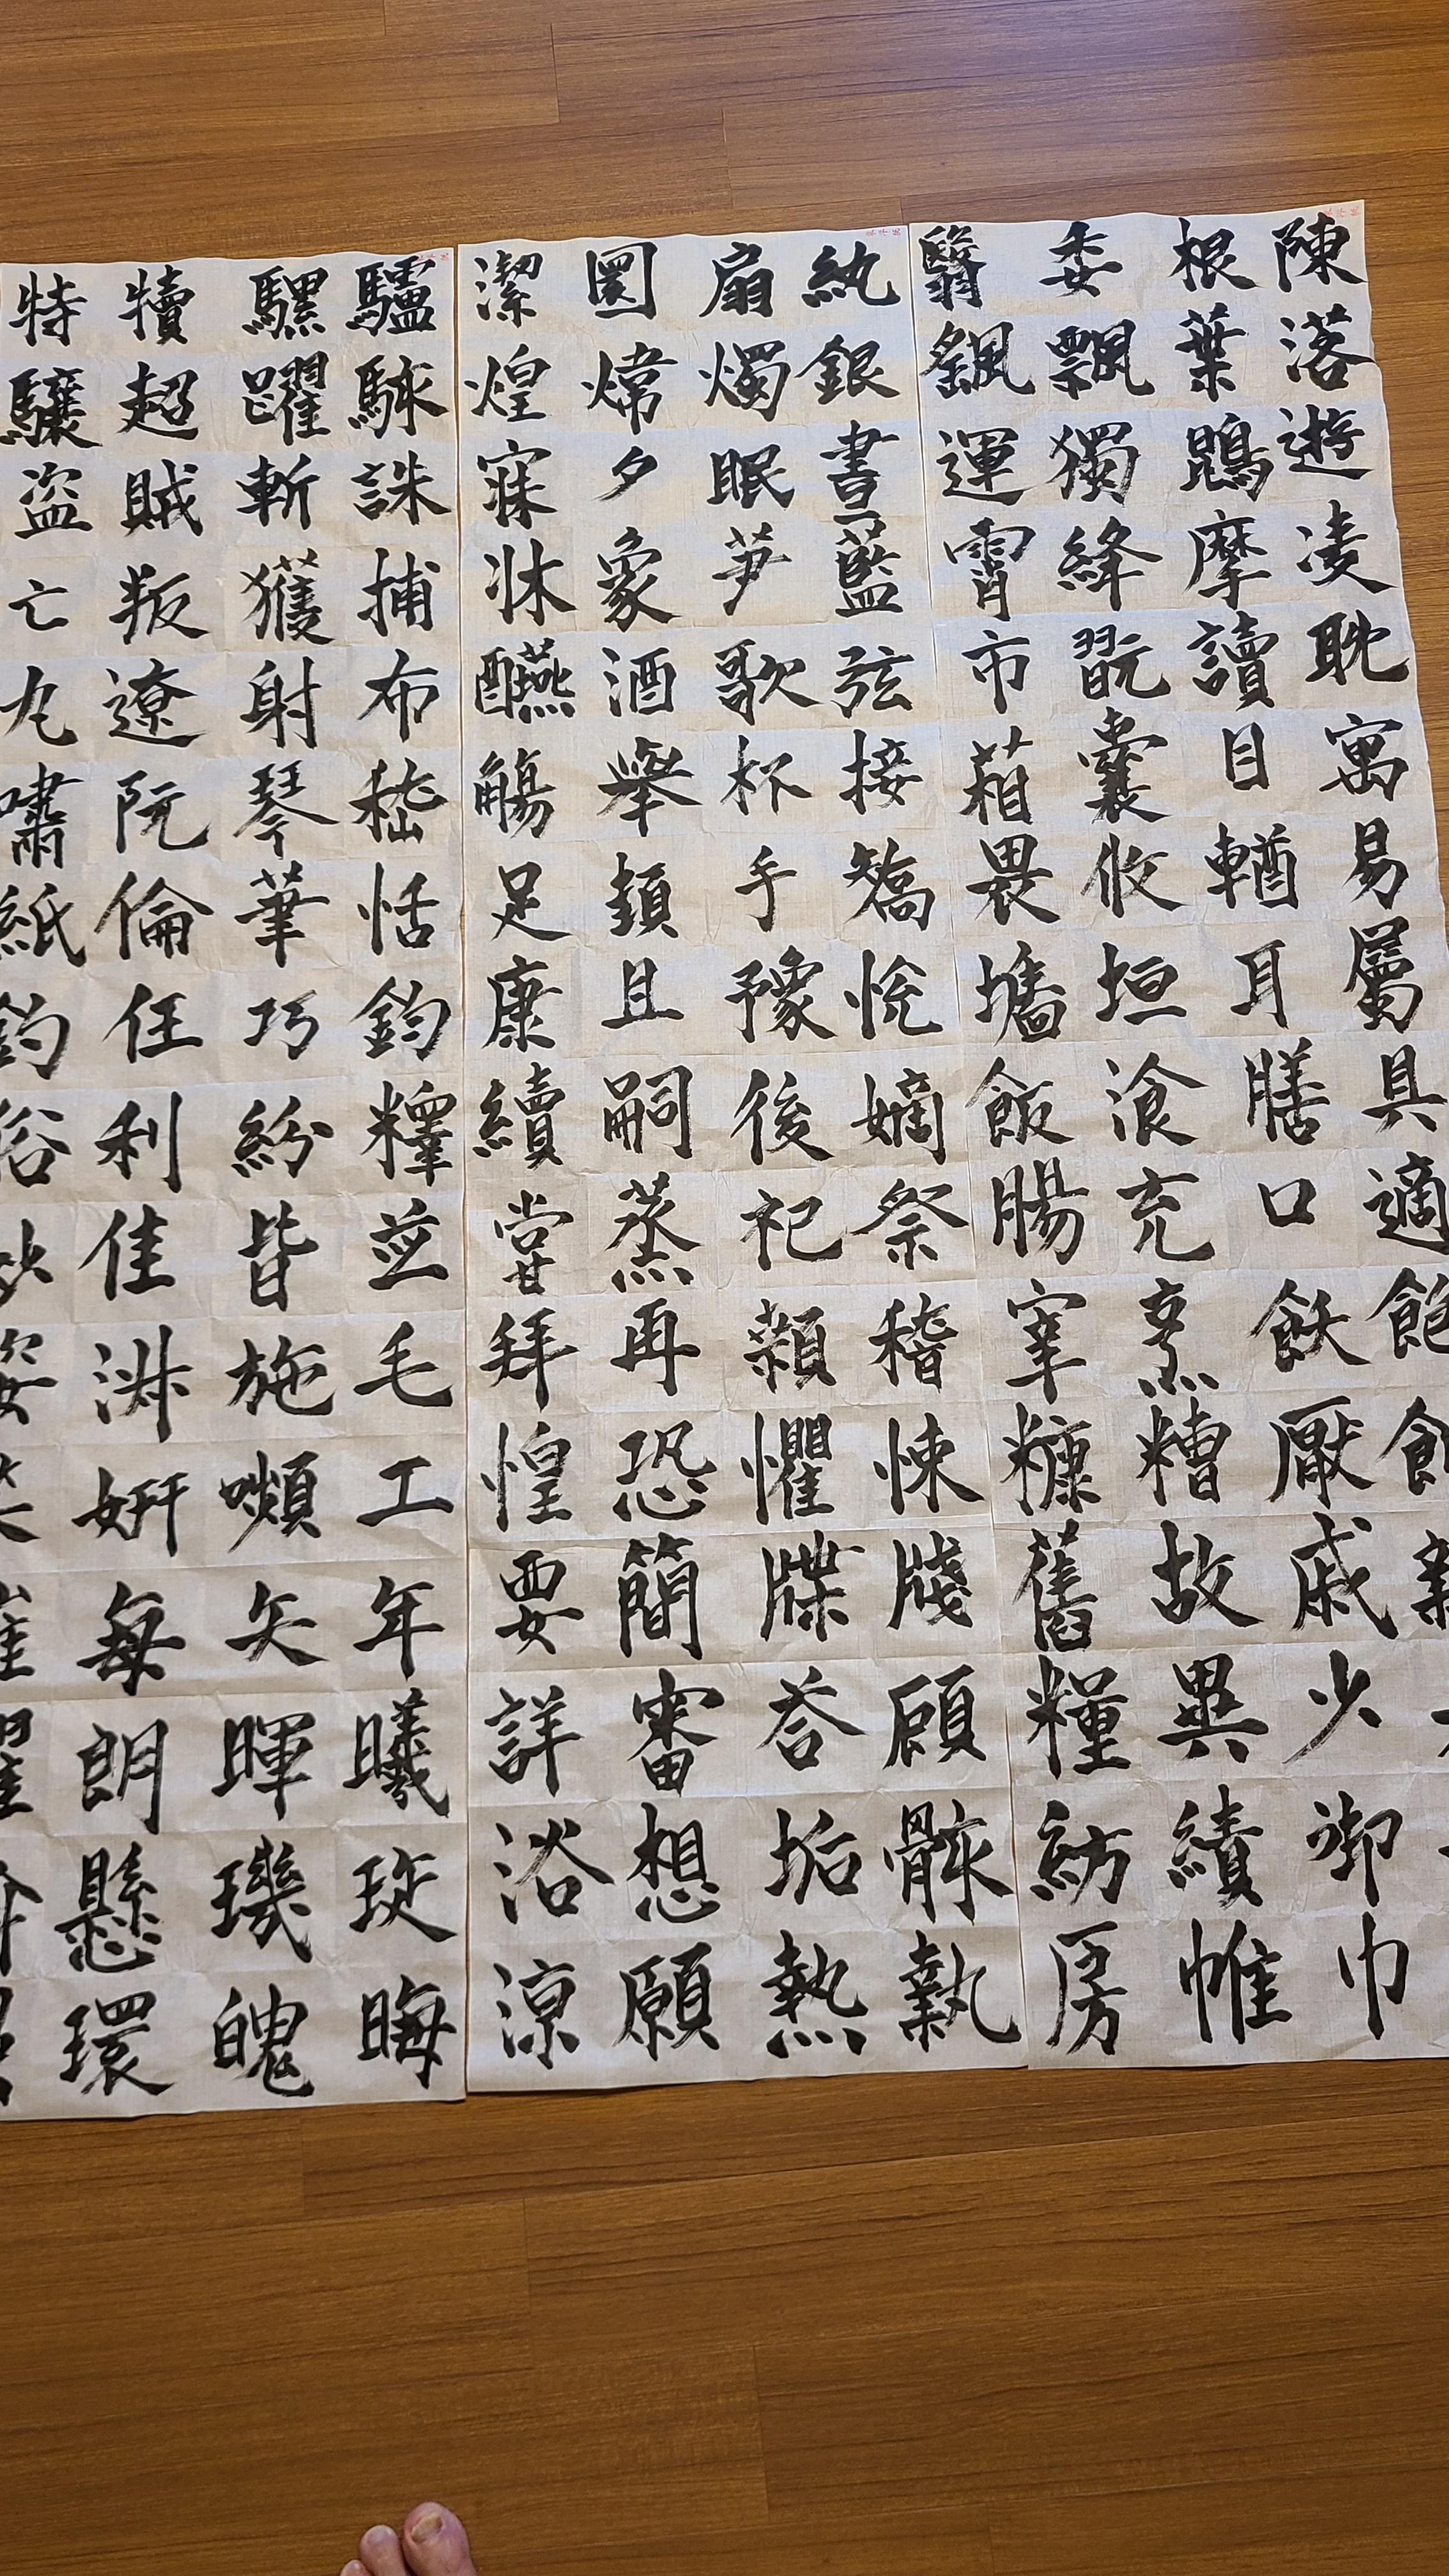 陳根委翳
落葉飄颻
遊鵾獨運
凌摩絳霄
耽讀翫市
寓目囊箱
易輶攸畏
屬耳垣墻
具膳飡飯
適口充腸
飽飫烹宰
厭糟糠
戚故舊
少異糧
御績紡
巾帷房
紈扇圓潔
銀燭煒煌
晝眠夕寐
藍笋象牀
弦歌酒醼
接杯舉觴
矯手頓足
悅豫且康
嫡後嗣續
祭祀蒸嘗
稽顙再拜
悚懼恐惶
牋牒簡要
顧荅審詳
骸垢想浴
執熱願凉
驢騾犢特
駭躍超驤
誅斬賊盜
捕獲叛亡
布射遼丸
嵇琴阮嘯
恬筆倫紙
鈞巧任釣
釋紛利俗
並皆佳
毛施淑姿
工嚬妍
年矢每
曦暉朗
琁璣懸
晦魄環